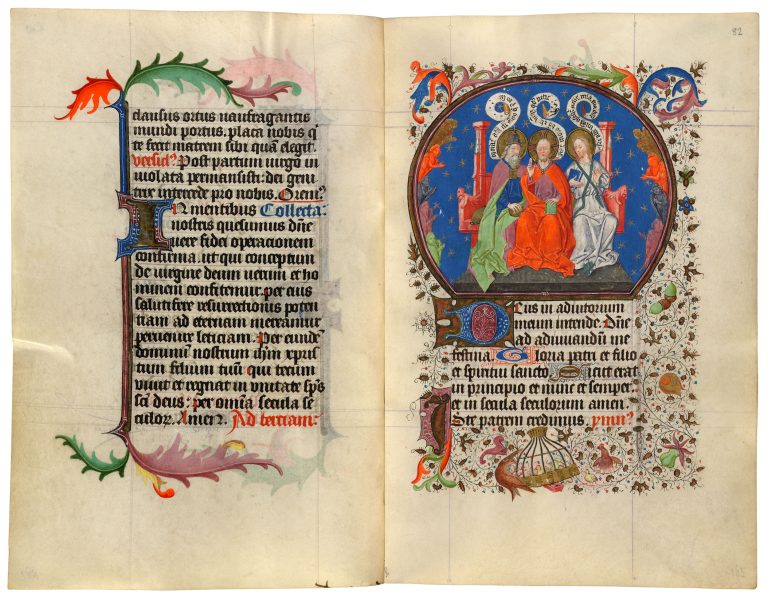 clausus ortus naufragantis
mundi portus, placa nobis q̄
te fecit matrem sibi quā elegit.
Versic̄ Post partum virgo in
violata permansisti: dei geni
trix intercede pro nobis. Orem̄
In mentibus Collecta:
nostris quesumus dn̄e
vere fidei operacionem
confirma. ut qui conceptum
de virgine deum verum et ho
minem confitemur. per eius
salutifere resurrectionis poten
tiam ad eternam mereamur
pervenire leticiam. Per eundē
dominum nostrum ihm̄ xpris
tum filium tuū qui tecum
vivit et regnat in unitate sp̄s
sc̄i deus: per om̄ia secula se
culor. Amen. Ad terciam:
82
Deus in adiutorium
meum intende. Dn̄e
ad adiuvandū me
festina. Gloria patri et filio
et spiritui sancto. Sicut erat
in principio et nunc et semper.
et in secula seculorum amen.
patrem credimus. ymn̄